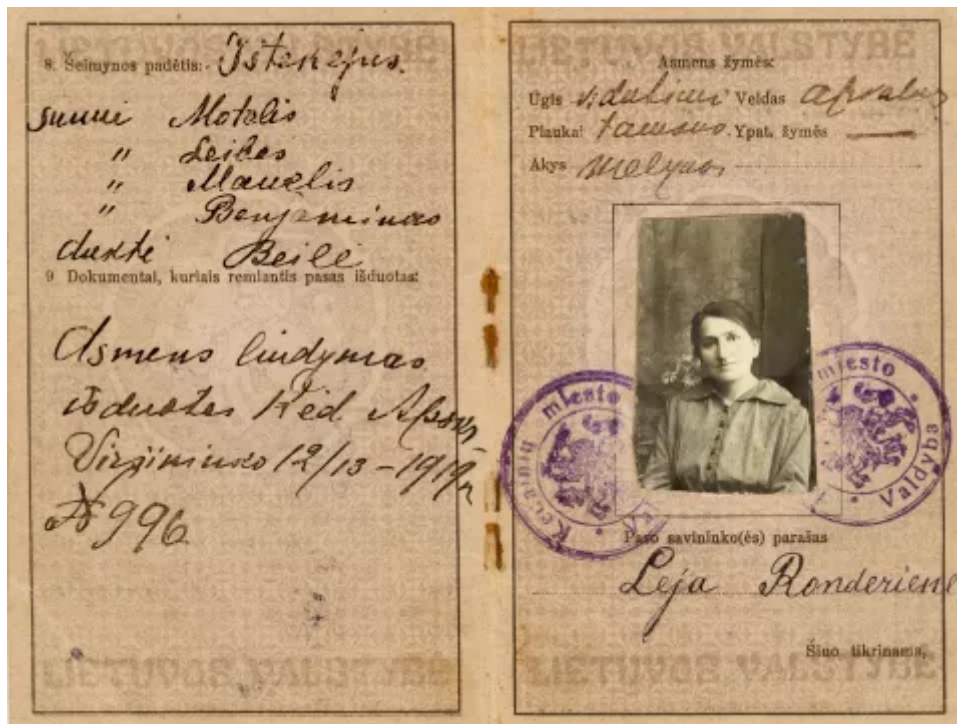 LIETUVOS VALSTYBĖ
8. Šeimynos padėtis:- Ištekėjus.
sunui Motelis
" Leibas
" Mauślis
" Benjaminas
duktė Beilė
9 Dokumentai, kuriais remiantis pasas išduotas:
Asmens liudymas
išduotas Kėd. Apskr.
Viršininko 12/13-1919 m
№ 996
LIETUVOS VALSTYBĖ
LIETUVOS VALSTYBĖ
Asmens žymės:
Ugis vidutinis Veidas apvalus
Plaukai tamsus. Ypat. žymės —
Akys melynos
Kėdainių miesto Valdyba
miesto
Paso savininko(ės) parašas
Leja Ronderienė
Šiuo tikrinama,
LIETUVOS VALSTYBĖ